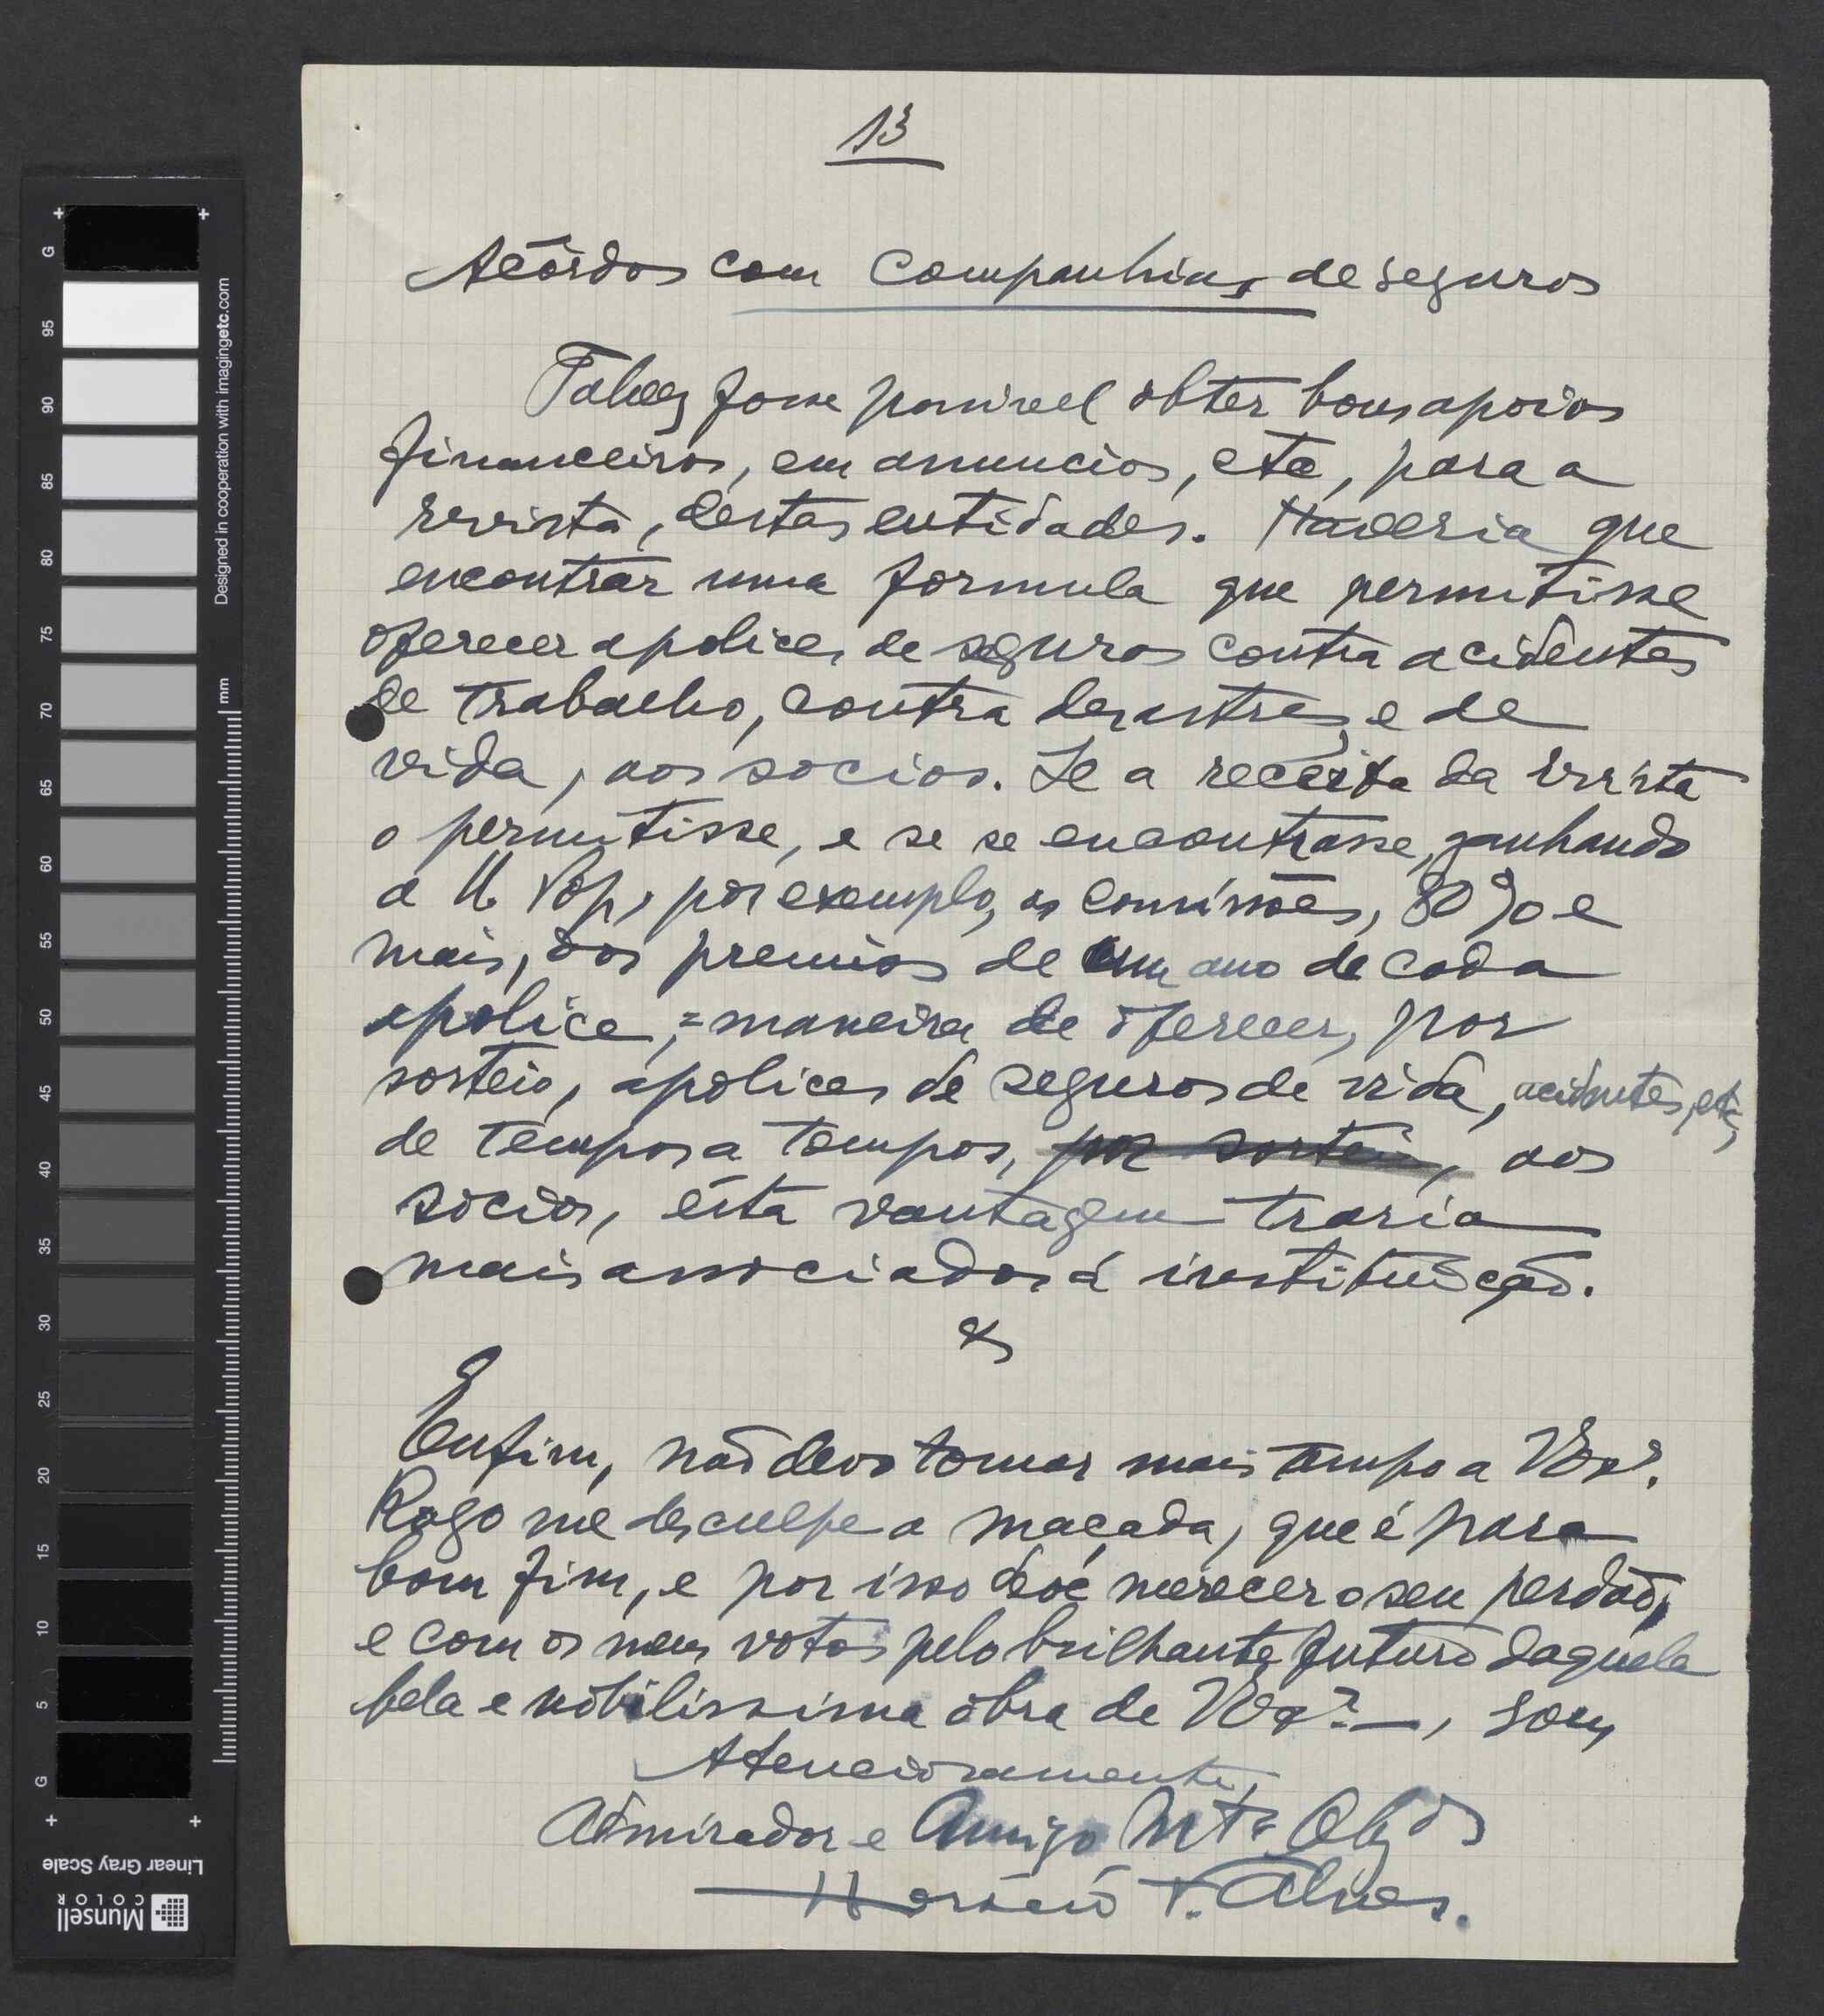 13
Acôrdos com Companhias de seguros
Talvez fosse possivel obter bons apoios
financeiros, em anuncios, etc, para a
revista, destas entidades. Haveria que
encontrar uma formula que permitisse
oferecer apolices de seguros contra acidentes
de trabalho, contra desastres, e de
vida, aos socios. Se a receita da revista
o permitisse, e se se encontrasse, ganhando
a U. Pop, por exemplo, as comissões, 80% e
mais, dos premios de um ano de cada
apolice, = maneira de oferecer, por
sorteio, apolices de seguros de vida, acidentes, etc,
de tempos a tempos, por sorteio, aos
socios, esta vantagem traria
mais associados á instituição.
Enfim, não devo tomar mais tempo a V Exª.
Rogo me desculpe a maçada, que é para
bom fim, e por isso deve merecer o seu perdão,
e com os meus votos pelo brilhante futuro daquela
bela e nobilissima obra de V Exª. —, sou,
Atenciosamente,
Admirador e Amigo Mtº Obgdº
Horácio V. Alves.
G 95 90 85 80 75 70 65 60 55 50 45 40 35 30 25 20 15 10 5 G
Designed in cooperation with imagingetc.com
mm
Linear Gray Scale
Munsell
COLOR